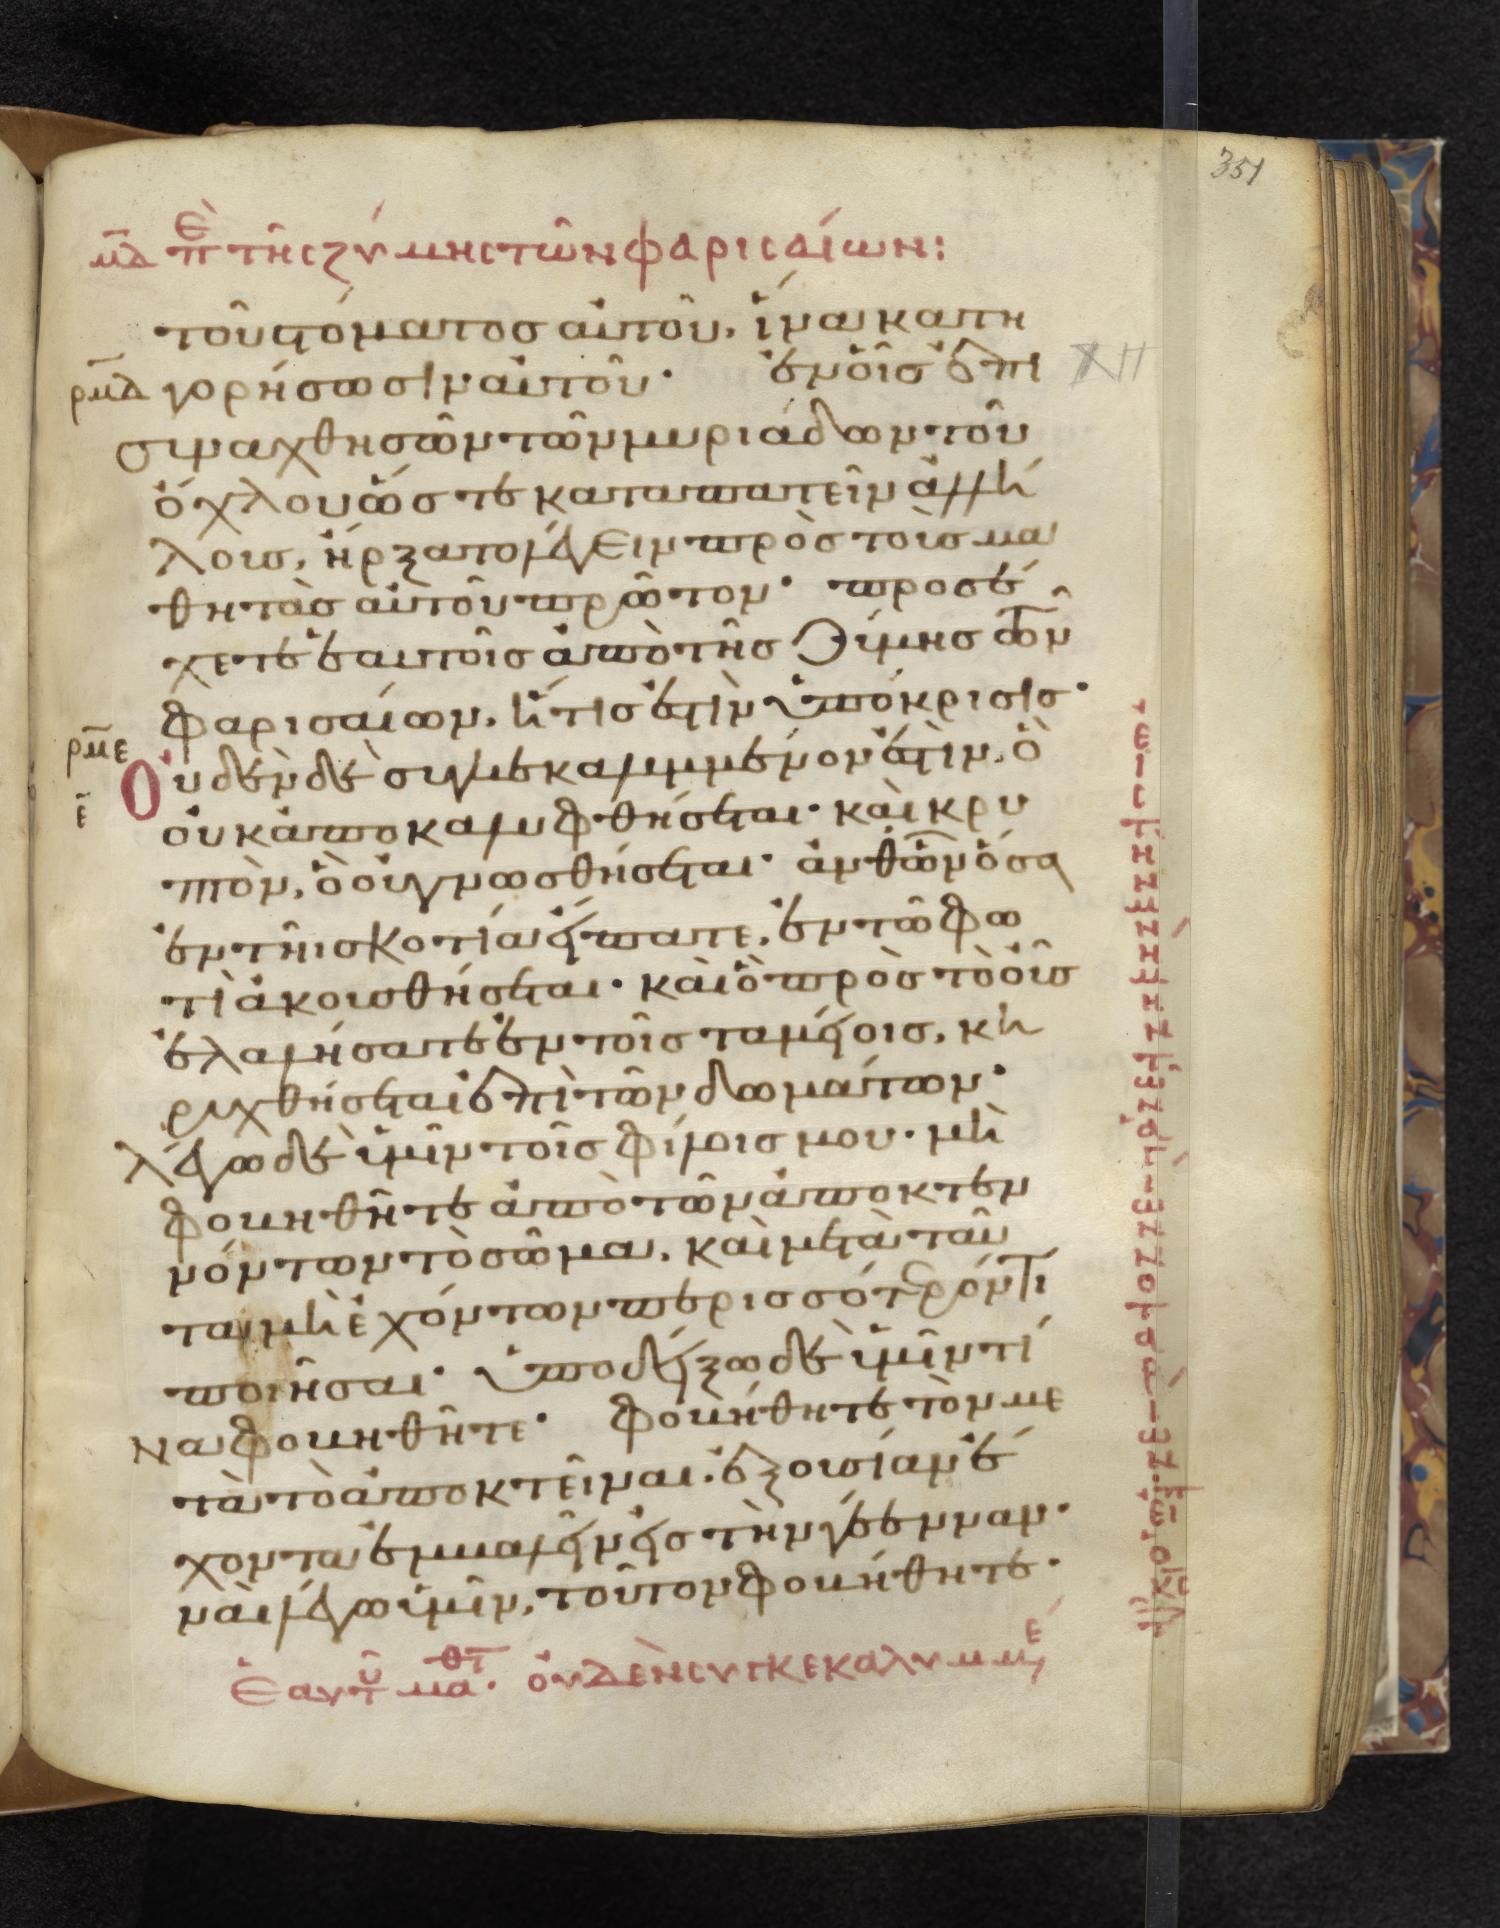 351
μδ περὶ τῆς ζύμης τῶν φαρισαίων:
τοῦ στόματος αὐτοῦ, ἵνα κατη
ρμδ γορήσωσιν αὐτοῦ· ἐν οἷς ἐπι
XII
συναχθησῶν τῶν μυριάδων τοῦ
ὄχλου ὥστε καταπατεῖν ἀλλή
λους, ἤρξατο λέγειν πρὸς τοὺς μα
θητὰς αὐτοῦ πρῶτον· προσέ
χετε ἑαυτοῖς ἀπὸ τῆς ζύμης τῶν
φαρισαίων, ἥτις ἐστὶν ὑπόκρισις·
ρμε
Οὐδὲν δὲ συγκεκαλυμμένον ἐστὶν, ὃ
ε
οὐκ ἀποκαλυφθήσεται· καὶ κρυ
πτὸν, ὃ οὐ γνωσθήσεται· ἀνθ ὧν ὅσα
ἐν τῆι σκοτία εἴπατε, ἐν τῶ φω
τὶ ἀκουσθήσεται· καὶ ὃ πρὸς τὸ οὖς
ἐλαλήσατε ἐν τοῖς ταμείοις, κη
ρυχθήσεται ἐπὶ τῶν δωμάτων·
λέγω δὲ ὑμῖν τοῖς φίλοις μου· μὴ
φοβηθῆτε ἀπὸ τῶν ἀποκτεν
νόντων τὸ σῶμα, καὶ μετὰ ταῦ
τα μὴ ἐχόντων περισσότερόν τι
ποιῆσαι· ὑποδείξω δὲ ὑμῖν τί
να φοβηθῆτε· φοβήθητε τὸν με
τὰ τὸ ἀποκτεῖναι. ἐξουσίαν ἔ
χοντα ἐμβαλεῖν εἰς τὴν γέενναν·
ναὶ λέγω ὑμῖν, τοῦτον φοβήθητε·